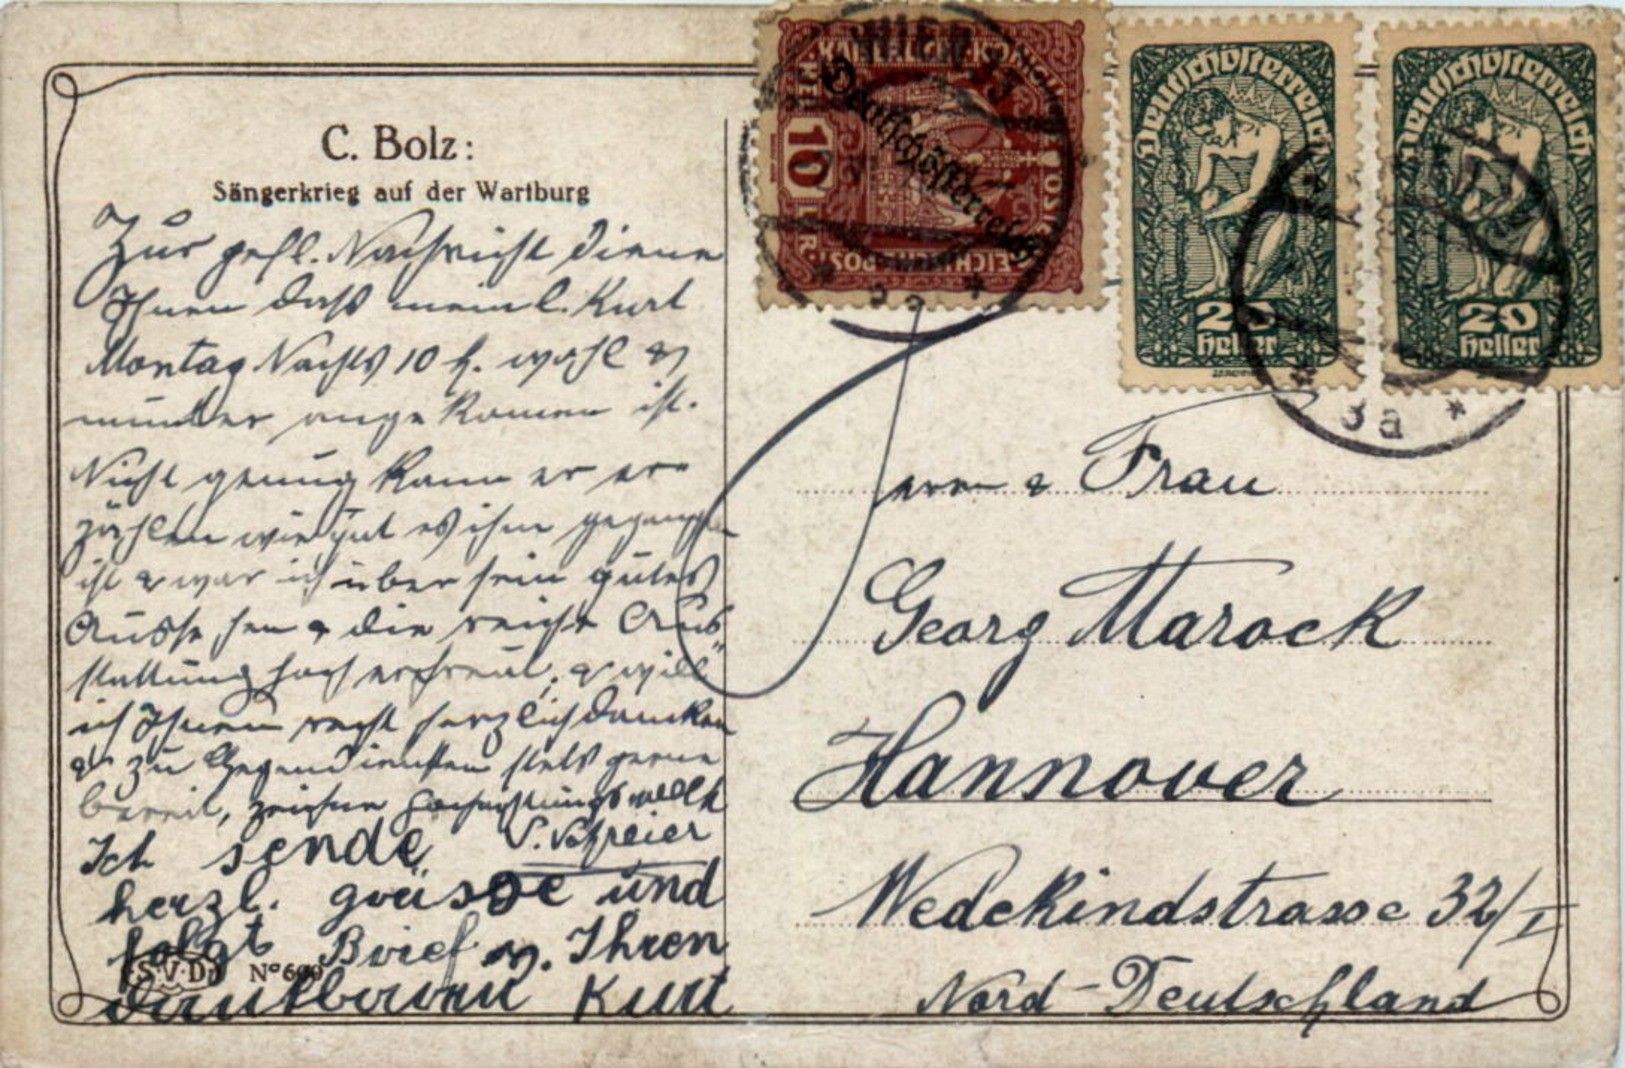 C. Bolz:
Sängerkrieg auf der Wartburg
Zur gefl. Nachricht diene
Ihnen daß mein l. Kurt
Montag Nachts 10 h. wohl &
munter angekomen ist.
Nicht genug kann er er-
zählen wie gut es ihm gegangen
ist & war ich über sein gutes
Aussehen & die reiche Aus-
stattung hoch erfreut, & will
ich Ihnen recht herzlich danken
& zu Gegendiensten stets gerne
bereit, zeichne hochachtungsvollst
Ich sende
herzl. grüsse und
folgt Brief v. Ihren
dankbaren Kurt
S.V.D. No 600
KAISERLICHE KÖNIGLICHE
10
Deutschösterreich
WIEN
3a *
Deutschösterreich
20
Heller
Deutschösterreich
20
Heller
3a *
Herrn & Frau
Georg Marock
Hannover
Wedekindstrasse 32/I
Nord-Deutschland